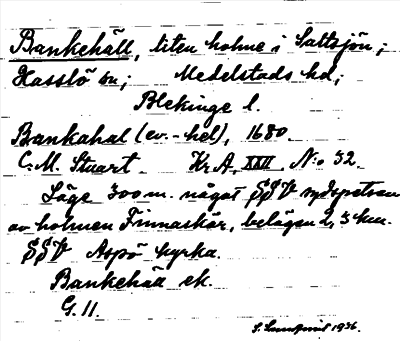 Bankehäll, liten holme i Saltsjön;
Hasslö sn; Medelstads hd;
Blekinge l.
Bankahal (ev. -hel), 1680.
C. M. Stuart. Kr A, XXII, N:o 52.
Läge 300 m. något SSV sydspetsen
av holmen Finnaskär, belägen 2,3 km.
SSV Aspö kyrka.
Bankehäll ek.
G. 11.
1936.